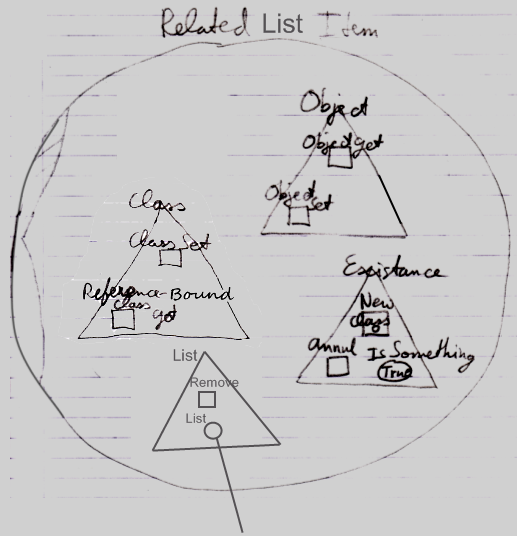 Related List Item
Object
Object get
Object
Set
Class
Class Set
Reference-Bound
Class get
Existance
New
Class
Annul Is Something
True
List
Remove
List